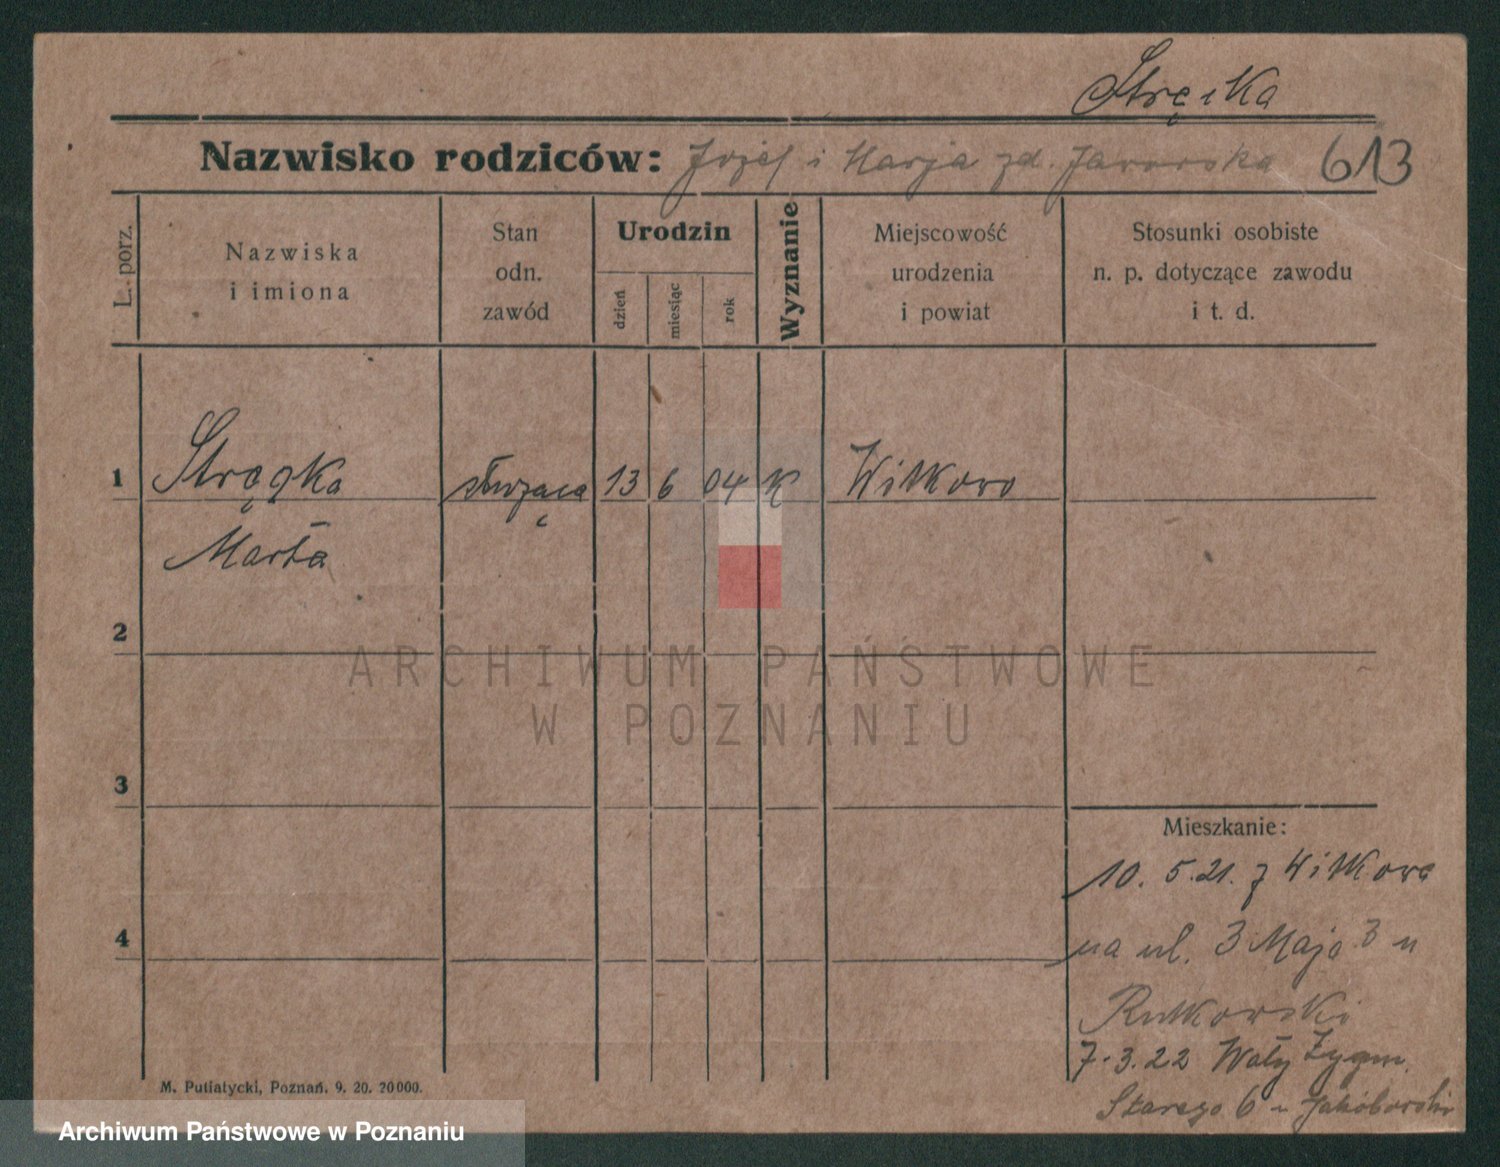 Stręika
Nazwisko rodziców: Jozef i Marja zd. Jaworska 613
L. porz.
Nazwiska
i imiona
Stan
odn.
zawód
Urodzin
dzień
miesiąc
rok
Wyznanie
Miejscowość
urodzenia
i powiat
Stosunki osobiste
n. p. dotyczące zawodu
i t. d.
1 służąca 13 6 04 K Witkowo
Marta
2
3
4
Mieszkanie:
10. 5. 21. z Witkowa
na ul. 3 Maja 3 u
Rutkowski
7. 3. 22 Wały Zygm.
Starego 6 u
M. Putiatycki, Poznań. 9. 20. 20000.
ARCHIWUM PAŃSTWOWE
W POZNANIU
Archiwum Państwowe w Poznaniu